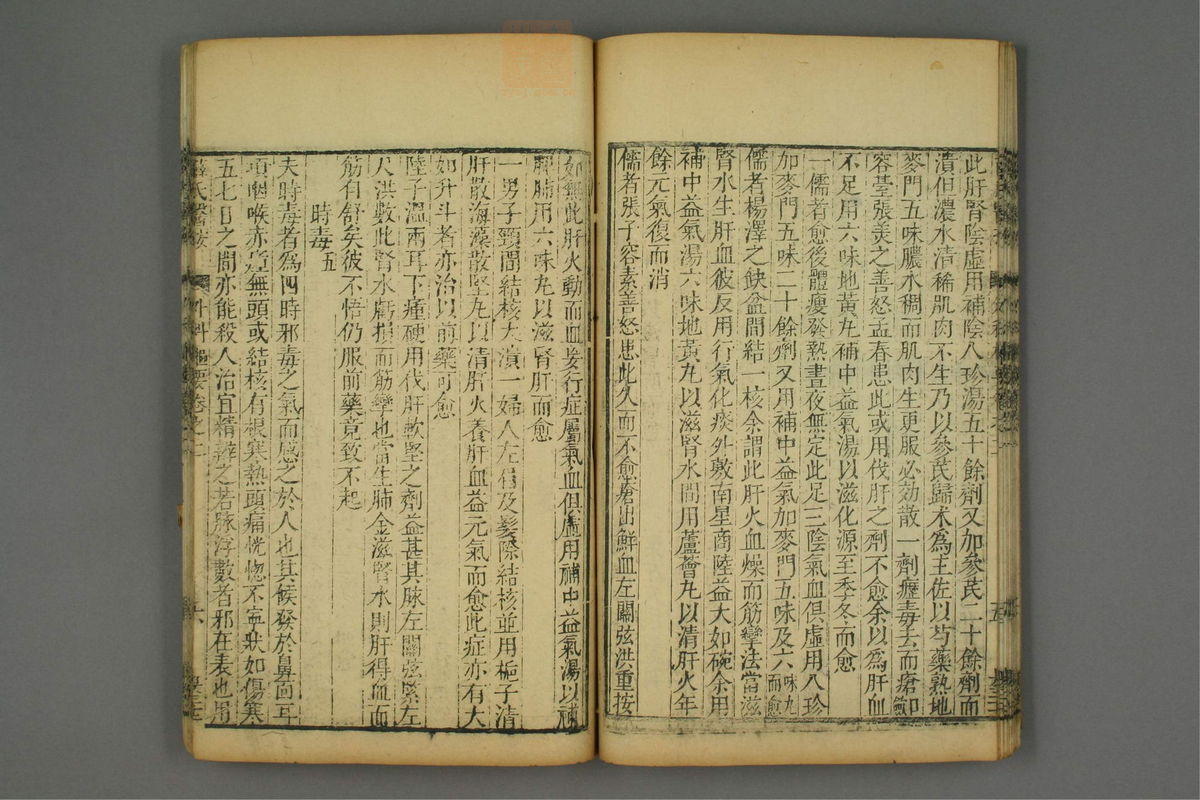 此肝腎陰虛用補陰八珍湯五十餘劑又加參芪二十餘劑而
潰但濃水清稀肌肉不生乃以參芪歸朮為主佐以芍藥熟地
麥門五味膿水稠而肌肉生更服必効散一劑癧毒去而瘡卽斂
容臺張美之善怒孟春患此或用伐肝之劑不愈余以為肝血
不足用六味地黃丸補中益氣湯以滋化源至季冬而愈
一儒者愈後體瘦發熱晝夜無定此足三陰氣血俱虛用八珍
加麥門五味二十餘劑又用補中益氣加麥門五味及六味丸而愈
儒者楊澤之缺盆間結一核余謂此肝火血燥而筋攣法當滋
腎水生肝血彼反用行氣化痰外敷南星商陸益大如碗余用
補中益氣湯六味地黃丸以滋腎水間用蘆薈丸以清肝火年
餘元氣復而消
儒者張子容素善怒患此久而不愈瘡出鮮血左關弦洪重按
如無此肝火動而血妄行症屬氣血俱虛用補中益氣湯以補
脾肺用六味丸以滋腎肝而愈
一男子頸間結核大潰一婦人左眉及髮際結核並用梔子清
肝散海藻散堅丸以清肝火養肝血益元氣而愈此症亦有大
如升斗者亦治以前藥可愈
陸子溫兩耳下腫硬用伐肝軟堅之劑益甚其脉左關弦緊左
尺洪數此腎水虧損而筋攣也當生肺金滋腎水則肝得血而
筋自舒矣彼不悟仍服前藥竟致不起
時毒五
夫時毒者為四時邪毒之氣而感之於人也其候發於鼻面耳
項咽喉赤腫無頭或結核有根寒熱頭痛恍惚不寧狀如傷寒
五七日之間亦能殺人治宜精辨之若脉浮數者邪在表也用
薛氏醫按 外科樞要卷之二 六